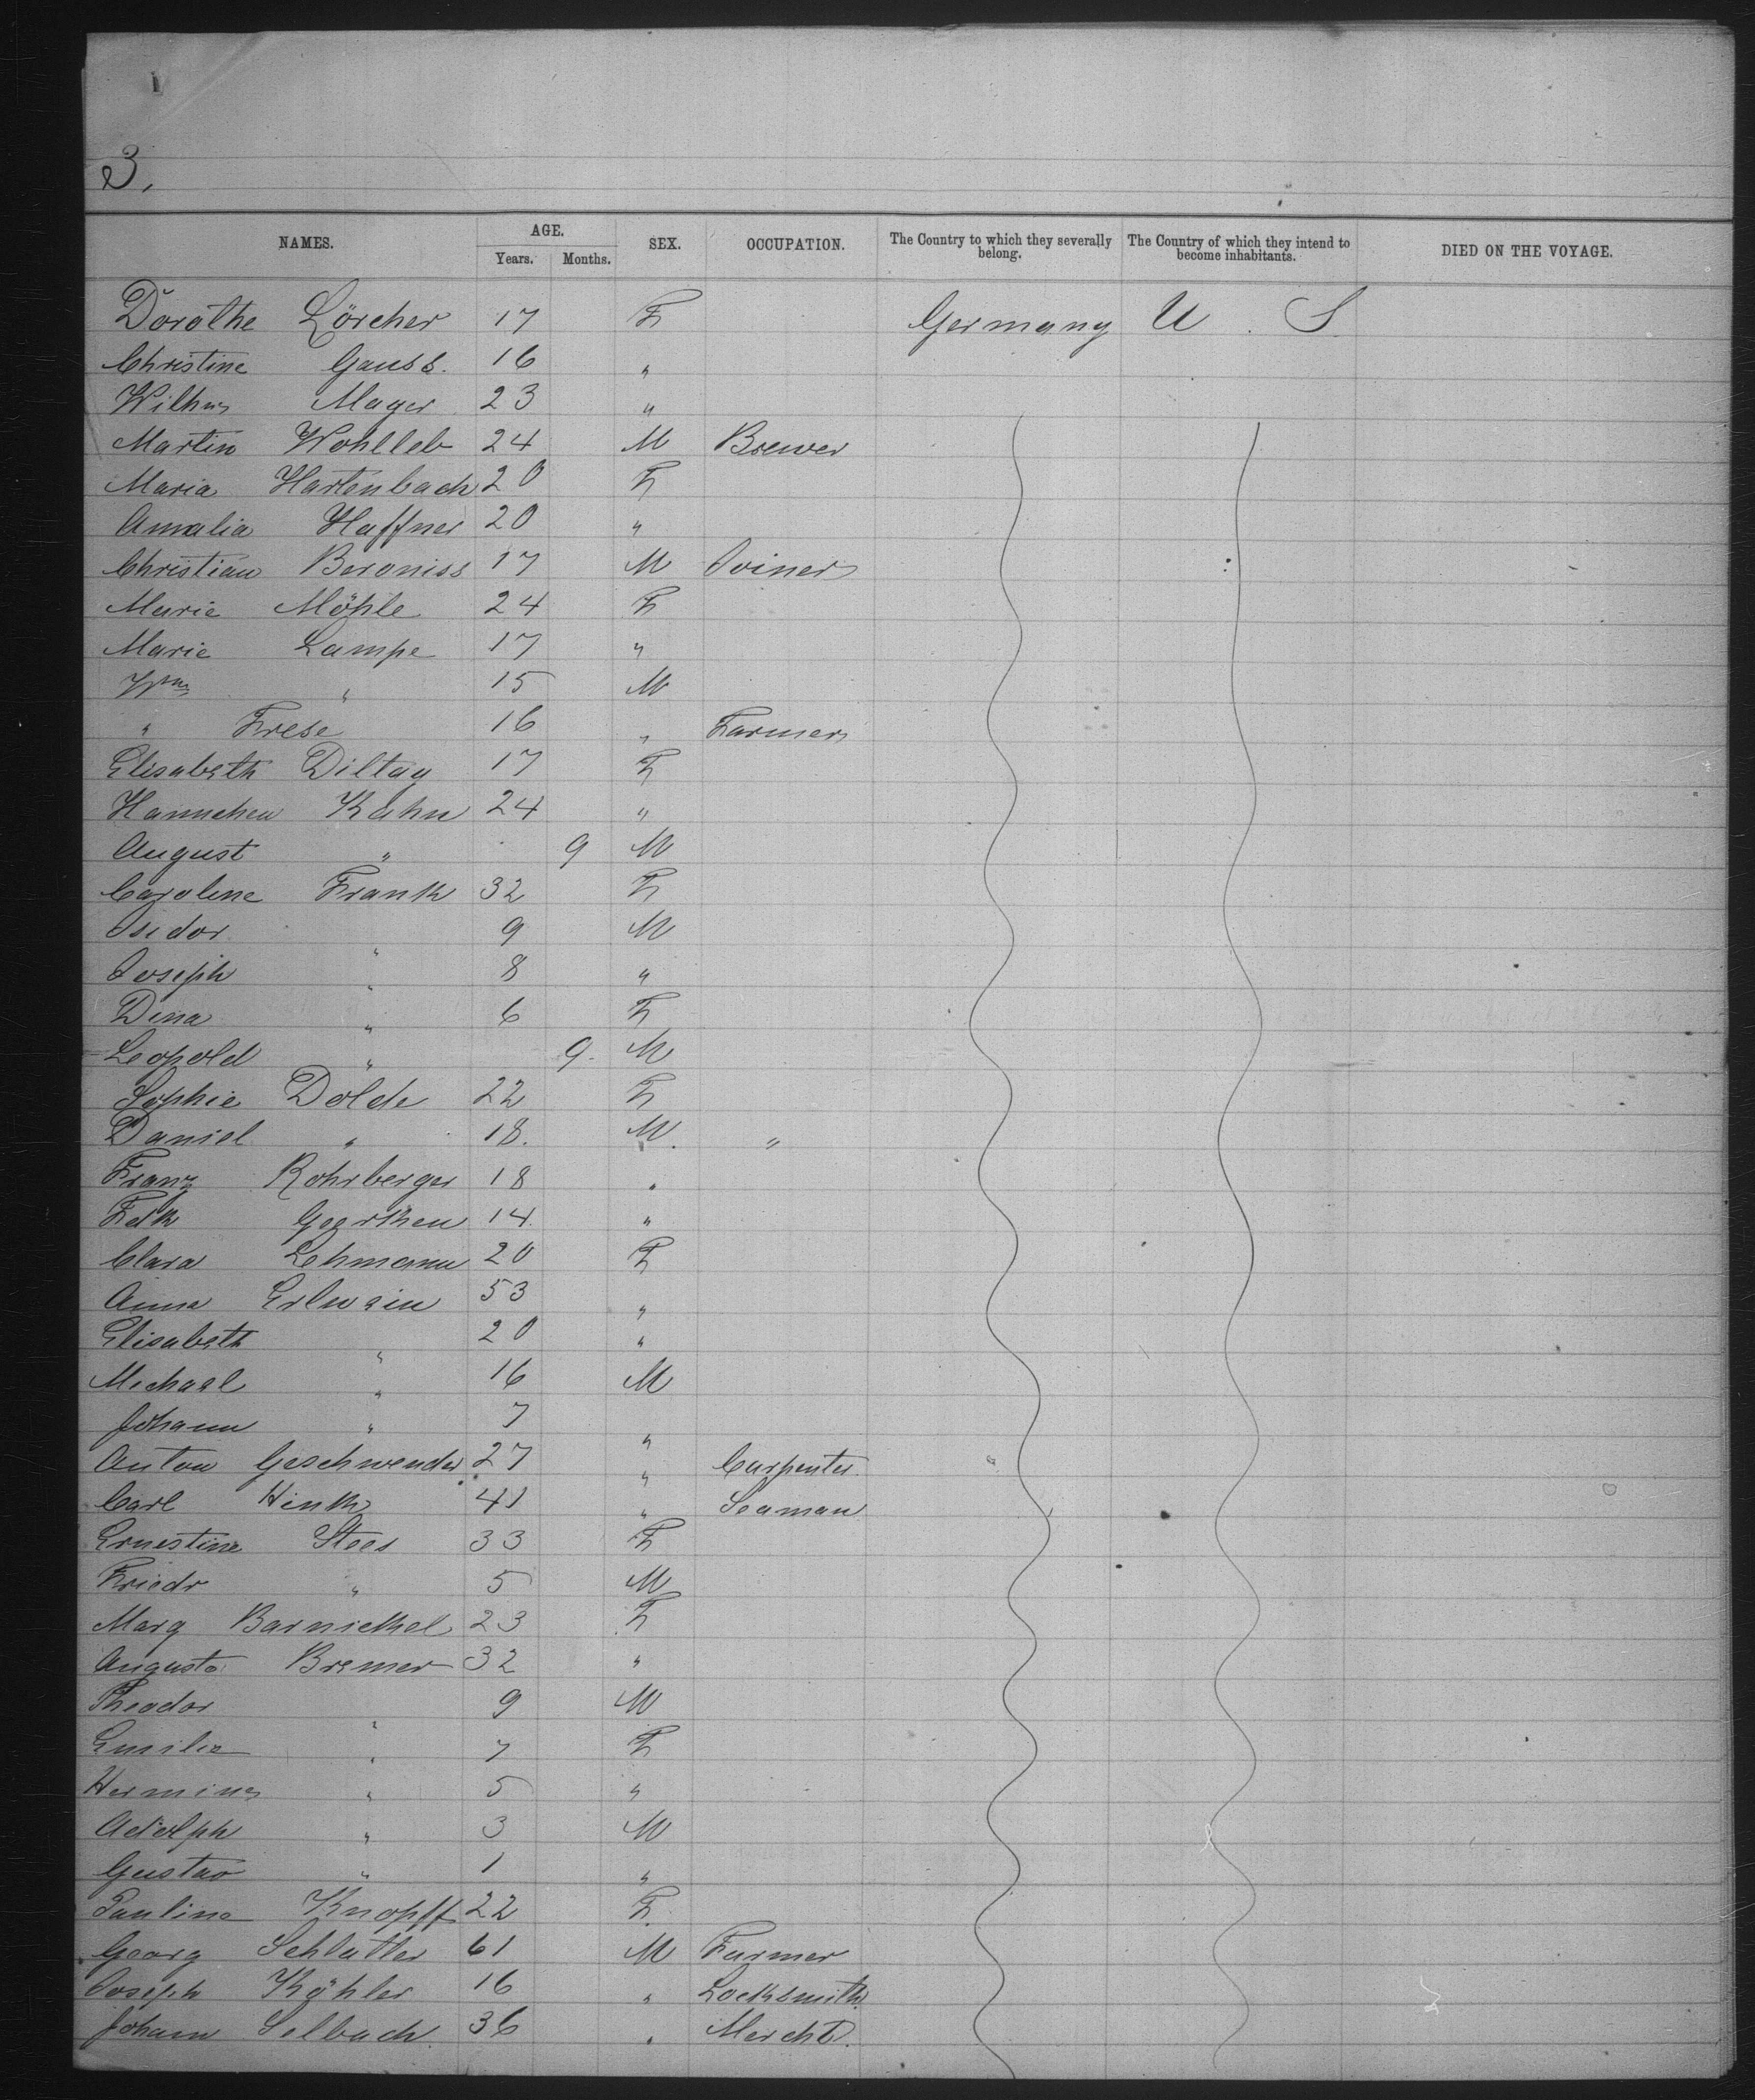 3.
NAMES. AGE. SEX. OCCUPATION. The Country to which they severally belong. The Country of which they intend to become inhabitants. DIED ON THE VOYAGE.
Years. Months.
Dorothe Lörcher 17 F Germany U. S.
Christine Gauss. 16 "
Mayer 23 "
Martin Wohlleb 24 M Brewer
Maria Hartenbach 20 F
Amalia Haffner 20 "
Christian Beroniss 17 M Joiner
Marie Möhle 24 F
Marie Lampe 17 "
Wm " 15 M
" Frese 16 " Farmer
Elisabeth Diltay 17 F
Hannchen Kahn 24 "
August " 9 M
Caroline Frank 32 F
Isidor " 9 M
Joseph " 8 "
Dina " 6 F
Leopold " 9. M
Sophie Dolde 22 F
Daniel " 18. M. "
Franz Rohrberger 18 "
Fdk Geerken 14. "
Clara Lehmann 20 F
Anna Erlwein 53 "
Elisabeth " 20 "
Michael " 16 M
Johann " 7 "
Anton Geschwender 27 " Carpenter.
Carl Hink 41 " Seaman
Ernestine Stees 33 F
Friedr " 5 M
Marg Barnickel 23 F
Augusta Bremer 32 "
Theodor " 9 M
Emilie " 7 F
Hermine " 5 "
Adolph " 3 M
Gustav " 1 "
Pauline Knopff 22 F.
Georg Schlatter 61 M Farmer
Joseph Köhler 16 " Locksmith.
Johann Selbach. 36 " Mercht.